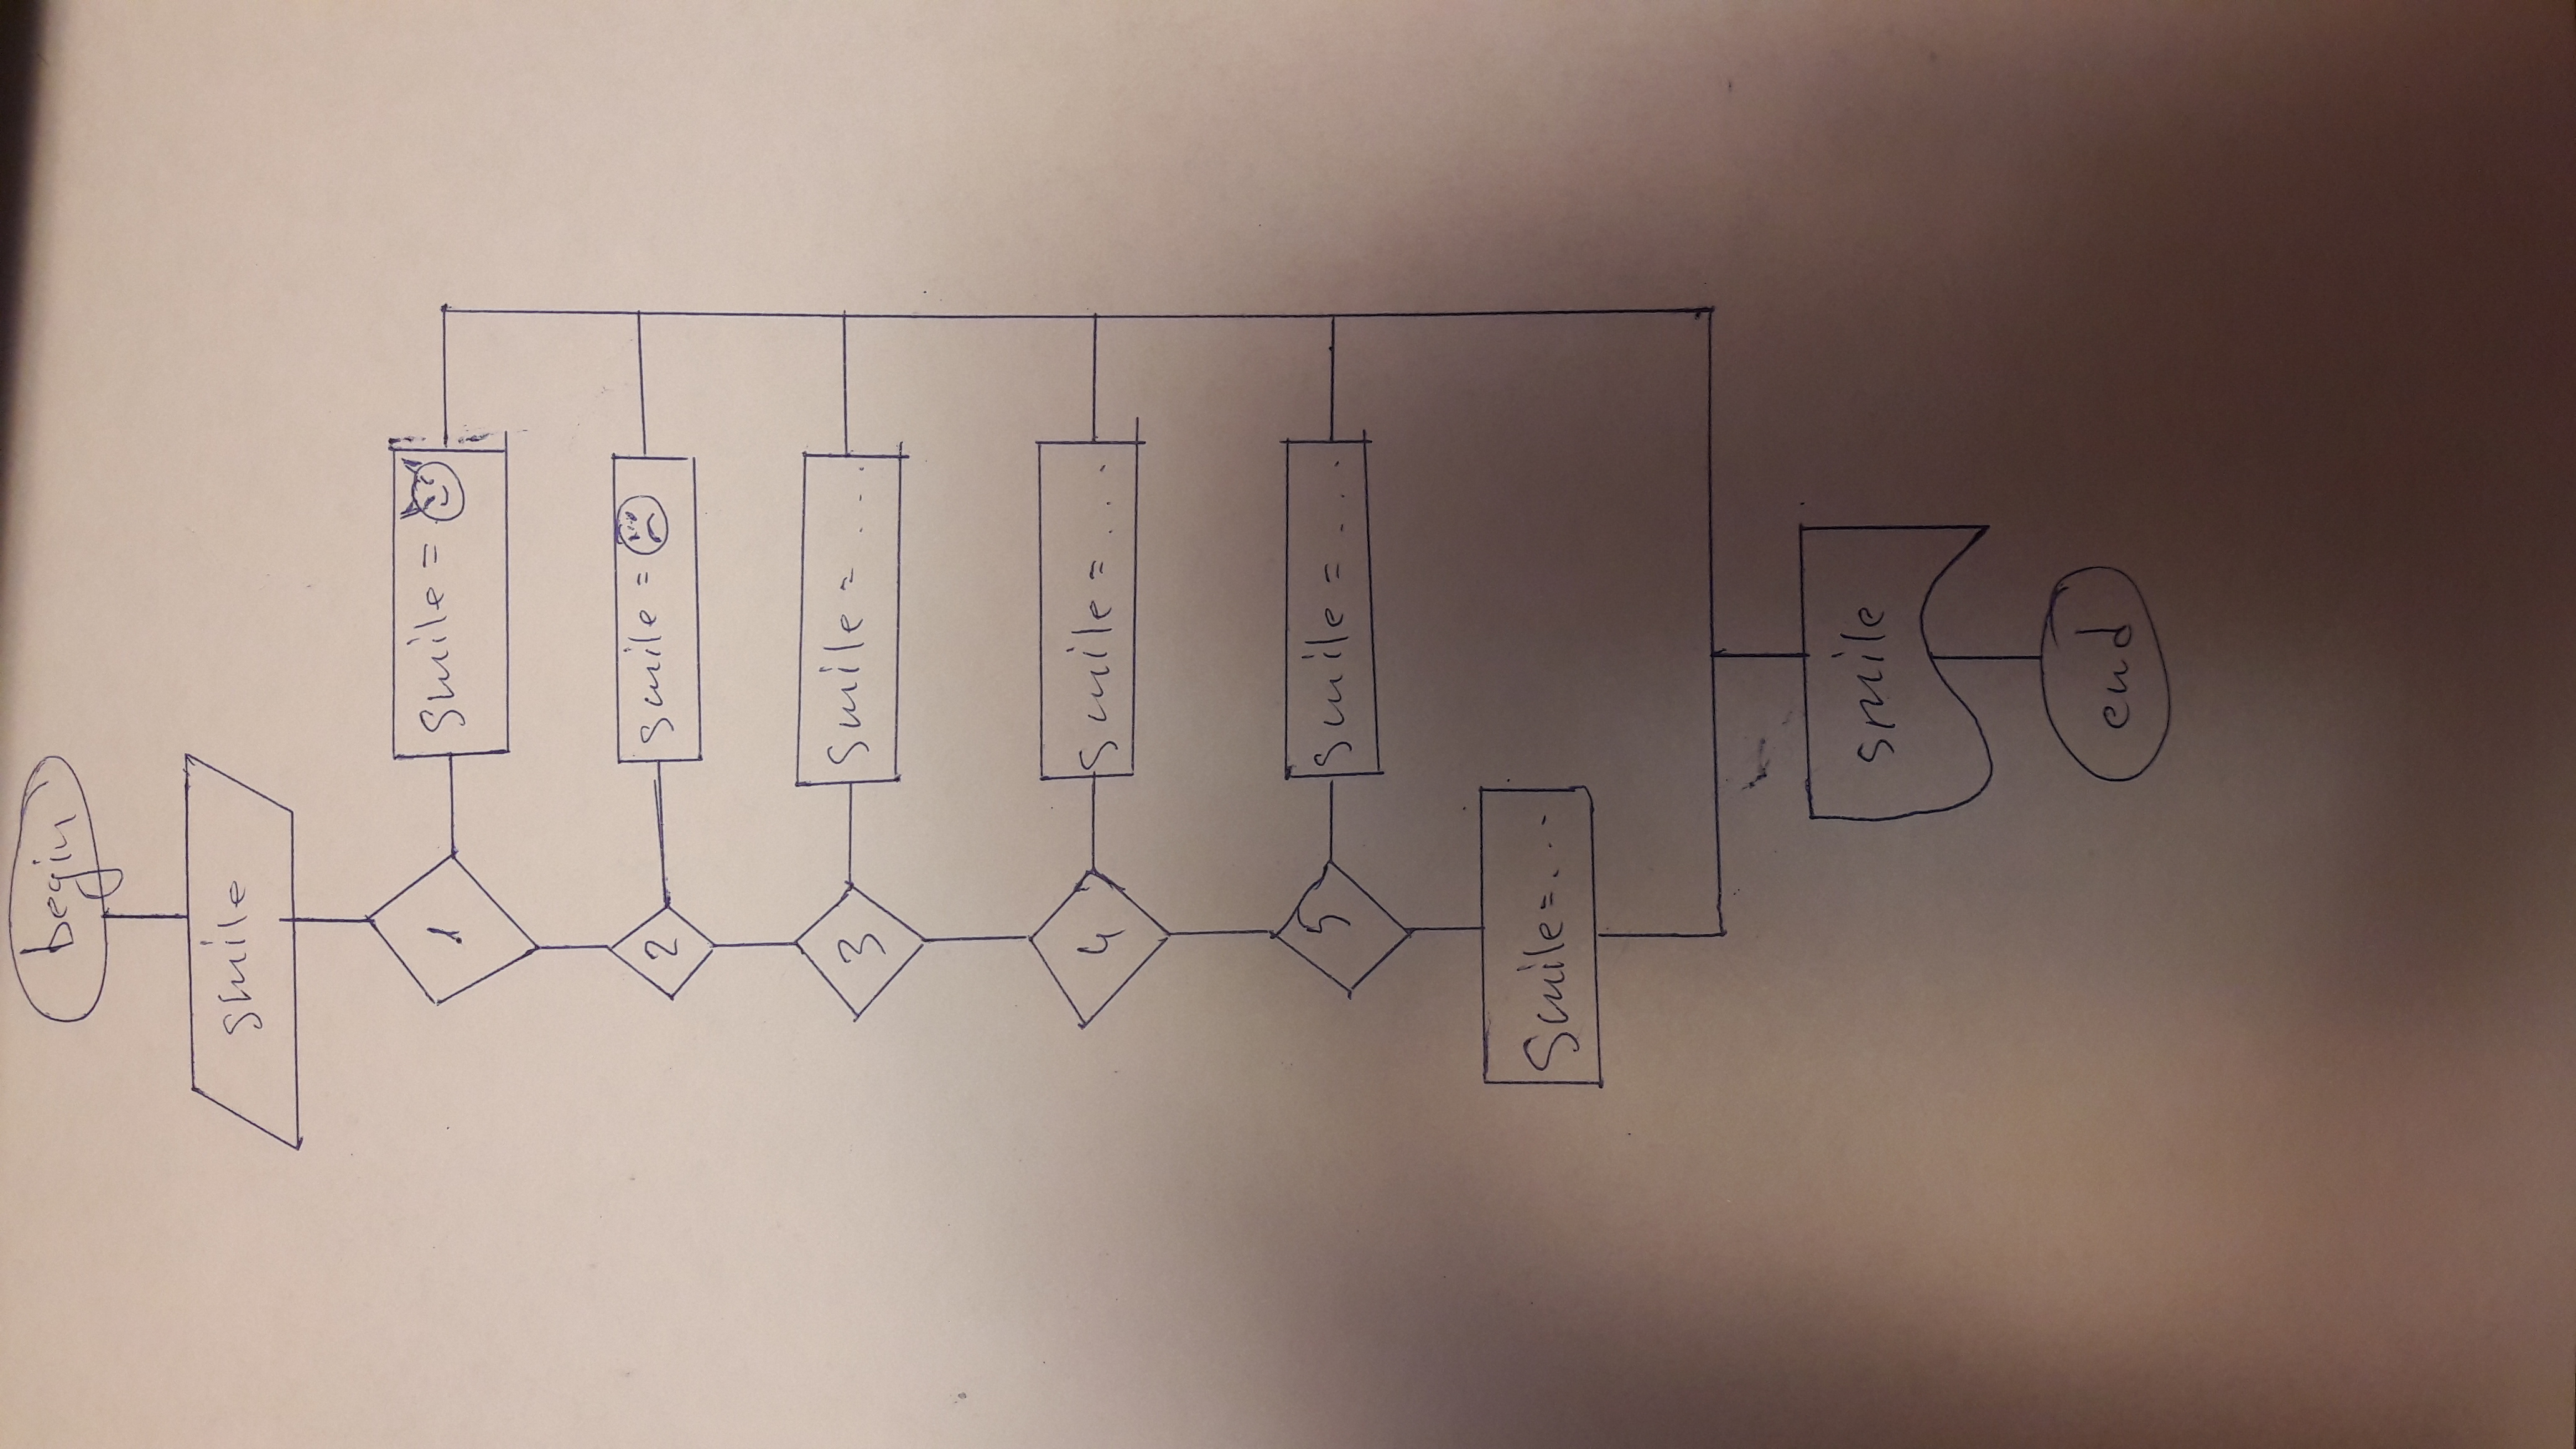 begin
smile
1
smile = 😈
2
smile = ☹
3
smile = ...
4
smile = ...
5
smile = ...
Smile = ...
smile
end